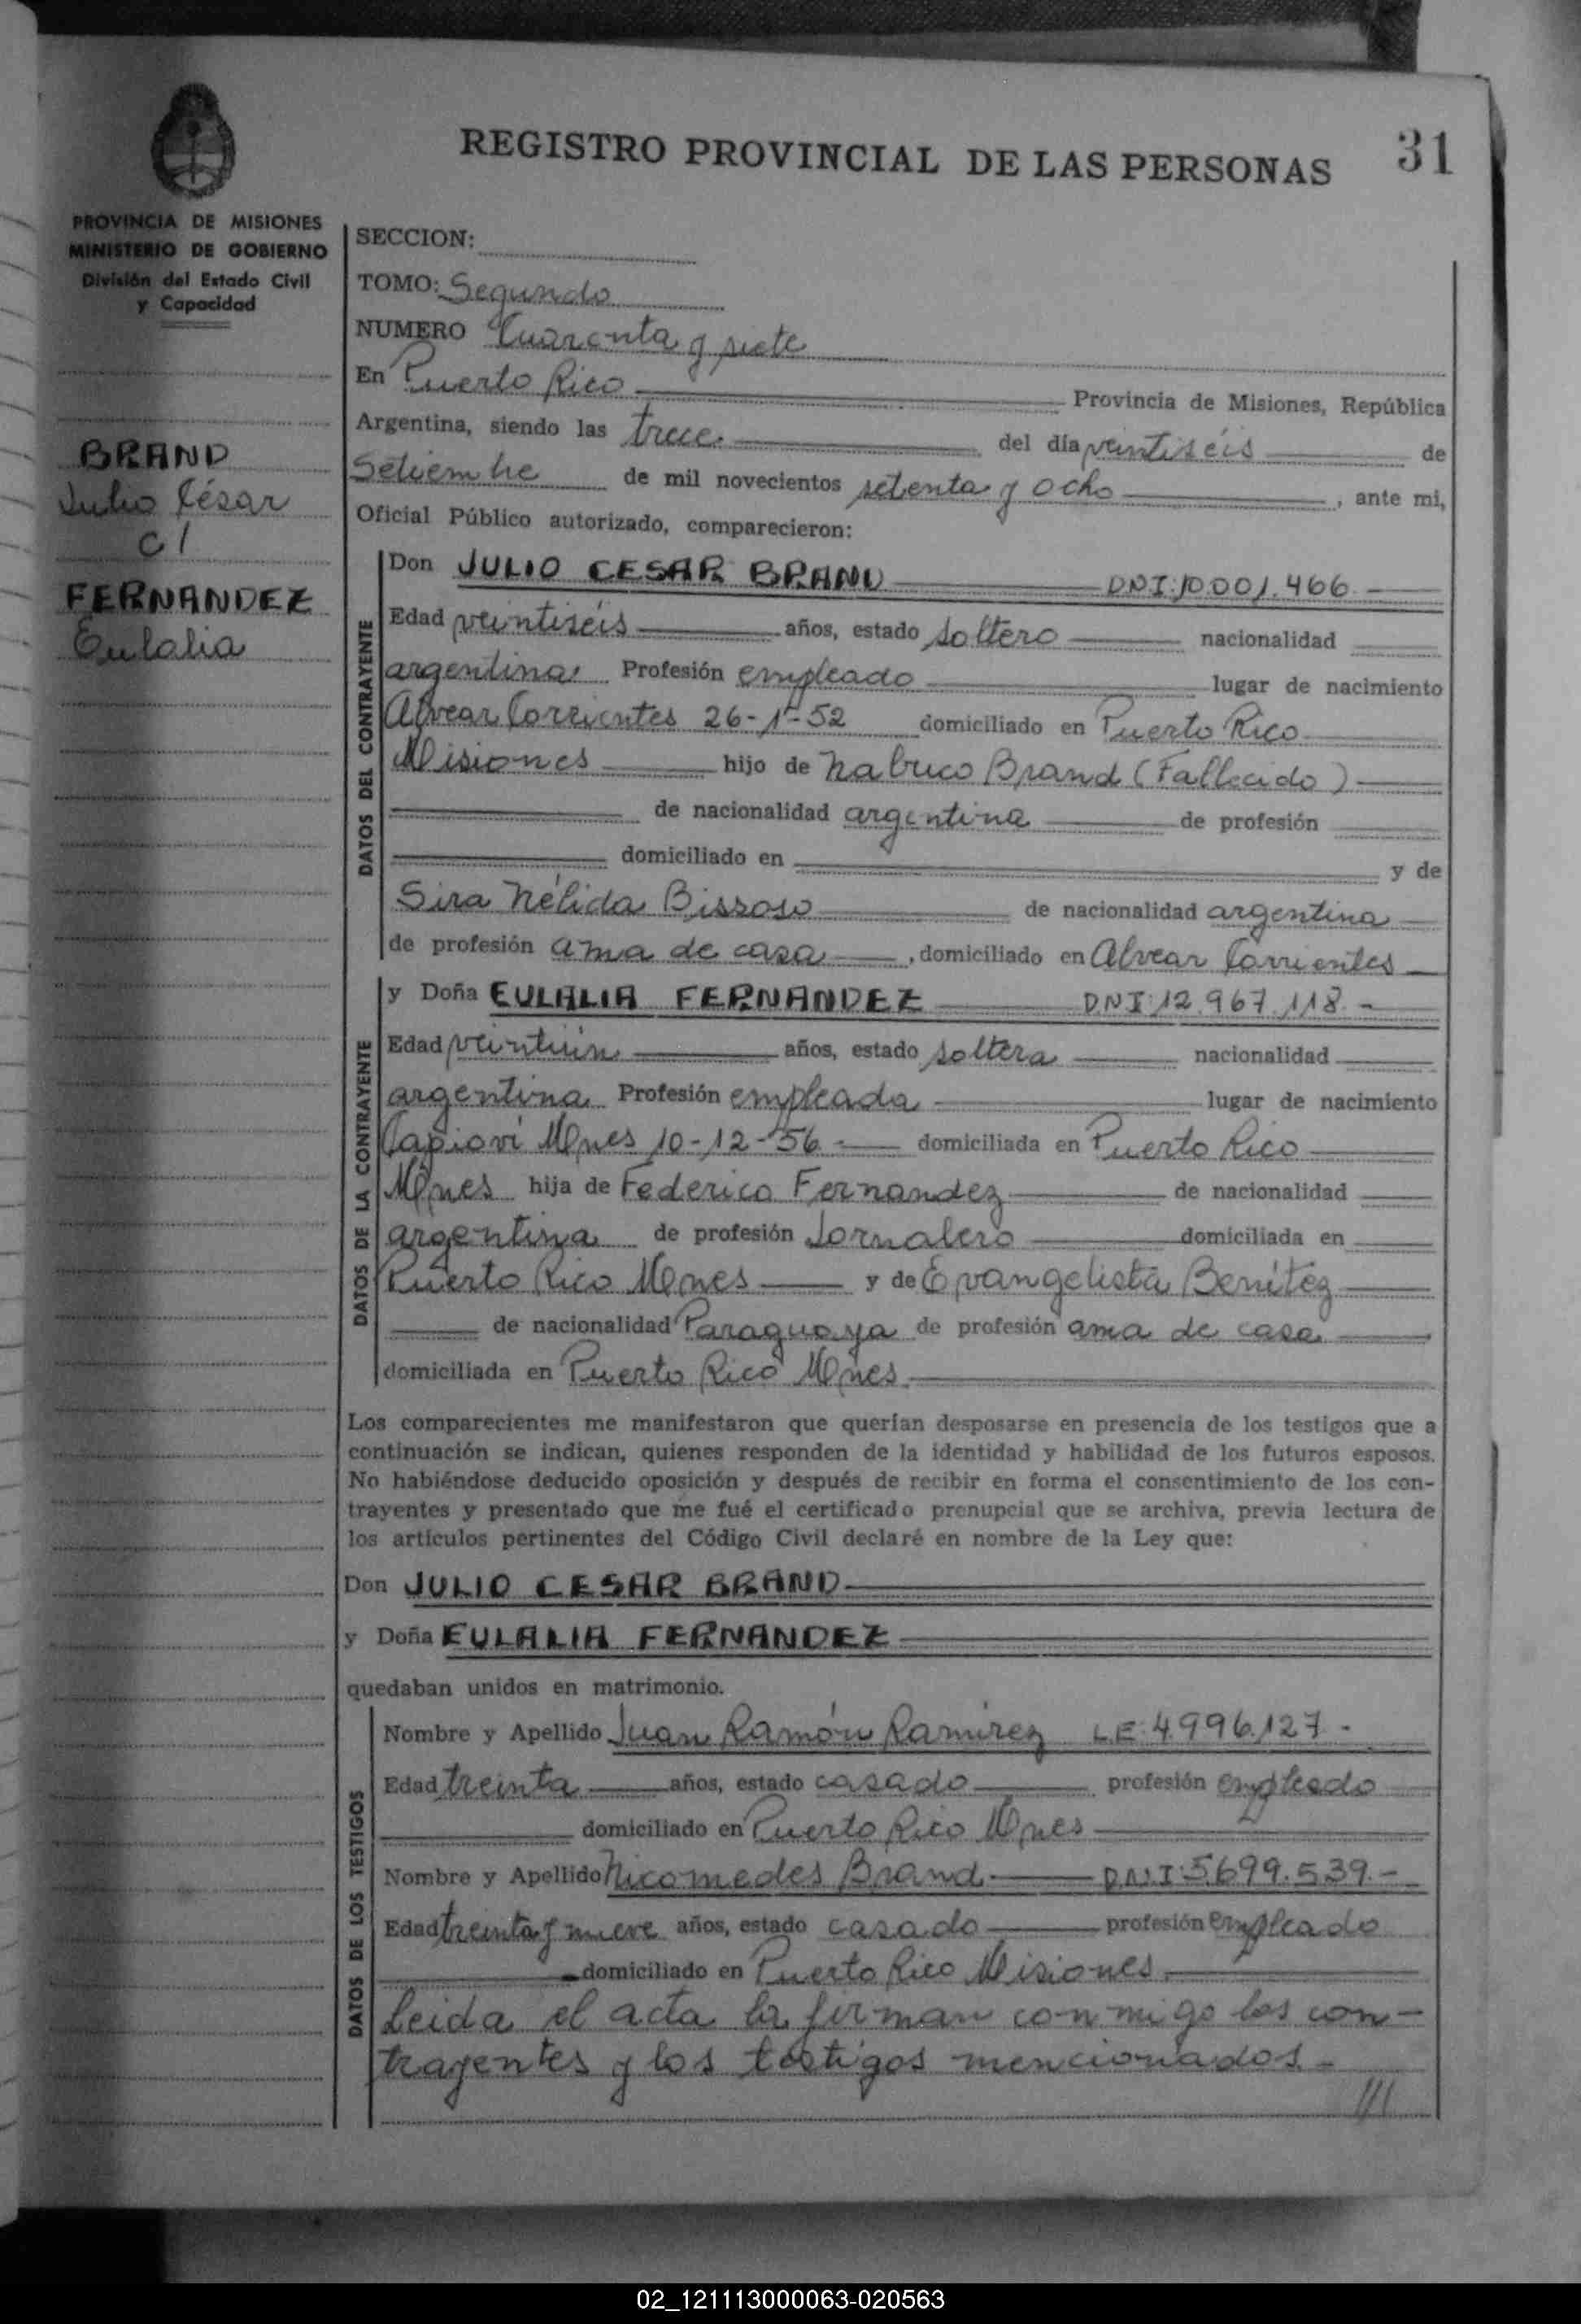 REGISTRO PROVINCIAL DE LAS PERSONAS 31
PROVINCIA DE MISIONES
MINISTERIO DE GOBIERNO
División del Estado Civil
y Capacidad
BRAND
Julio César
c/
FERNANDEZ
Eulalia
SECCION:
TOMO: Segundo
NUMERO Cuarenta y siete
En Puerto Rico Provincia de Misiones, República
Argentina, siendo las trece. del día veintiséis de
Setiembre de mil novecientos setenta y ocho, ante mi,
Oficial Público autorizado, comparecieron:
DATOS DEL CONTRAYENTE
Don JULIO CESAR BRAND DNI:10.001.466
Edad veintiséis años, estado soltero nacionalidad
argentina Profesión empleado lugar de nacimiento
Alvear Corrientes 26-1-52 domiciliado en Puerto Rico
Misiones hijo de Nabuco Brand (Fallecido)
de nacionalidad argentina de profesión
domiciliado en y de
Sira Nélida Bissoso de nacionalidad argentina
de profesión ama de casa, domiciliado en Alvear Corrientes
DATOS DE LA CONTRAYENTE
y Doña EULALIA FERNANDEZ DNI:12.967.118.-
Edad veintiún años, estado soltera nacionalidad
argentina Profesión empleada lugar de nacimiento
Capioví Mnes 10-12-56.- domiciliada en Puerto Rico
Mnes hija de Federico Fernandez de nacionalidad
argentina de profesión Jornalero domiciliada en
Puerto Rico Mnes y de Evangelista Benítez
de nacionalidad Paraguaya de profesión ama de casa
domiciliada en Puerto Rico Mnes.
Los comparecientes me manifestaron que querían desposarse en presencia de los testigos que a
continuación se indican, quienes responden de la identidad y habilidad de los futuros esposos.
No habiéndose deducido oposición y después de recibir en forma el consentimiento de los con-
trayentes y presentado que me fué el certificado prenupcial que se archiva, previa lectura de
los artículos pertinentes del Código Civil declaré en nombre de la Ley que:
Don JULIO CESAR BRAND
y Doña EULALIA FERNANDEZ
quedaban unidos en matrimonio.
DATOS DE LOS TESTIGOS
Nombre y Apellido Juan Ramón Ramírez L.E:4.996.127-
Edad treinta años, estado casado profesión empleado
domiciliado en Puerto Rico Mnes
Nombre y Apellido Nicomedes Brand DNI:5.699.539.-
Edad treinta y nueve años, estado casado profesión empleado
domiciliado en Puerto Rico Misiones.
Leida el acta la firman conmigo los con-
trayentes y los testigos mencionados.-
///
02_121113000063-020563